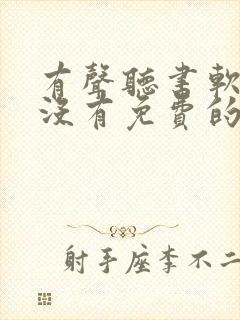 有聲聽書軟
沒有免費的
射手座李不二